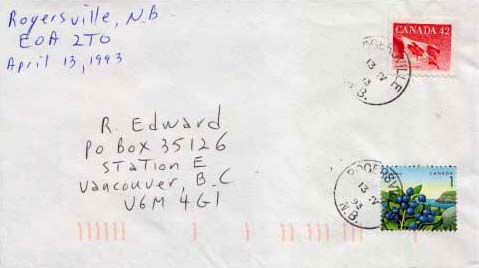 Rogersville, N.B
E0A 2T0
April 13, 1993
CANADA 42
ROGERSVILLE
13 IV
93
N.B.
R. Edward
PO BOX 35126
Station E
Vancouver, B.C
V6M 4G1
CANADA
1
ROGERSV
13 IV
93
N.B.